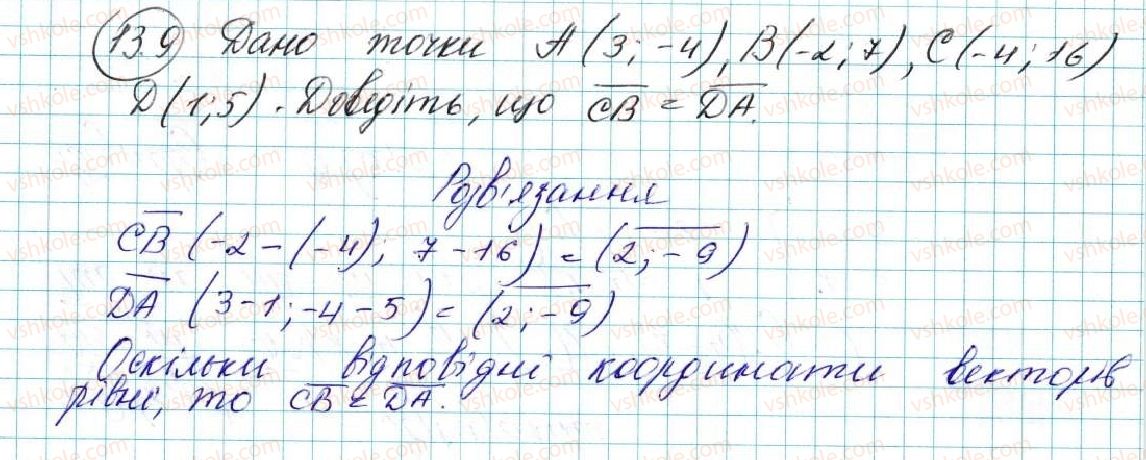 13.9 Дано точки A(3; -4), B(-2; 7), C(-4; 16)
D(1; 5). Доведіть, що CB = DA.
Розв'язання
CB (-2 - (-4); 7 - 16) = (2; -9)
DA (3 - 1; -4 - 5) = (2; -9)
Оскільки відповідні координати векторів
рівні, то CB = DA.